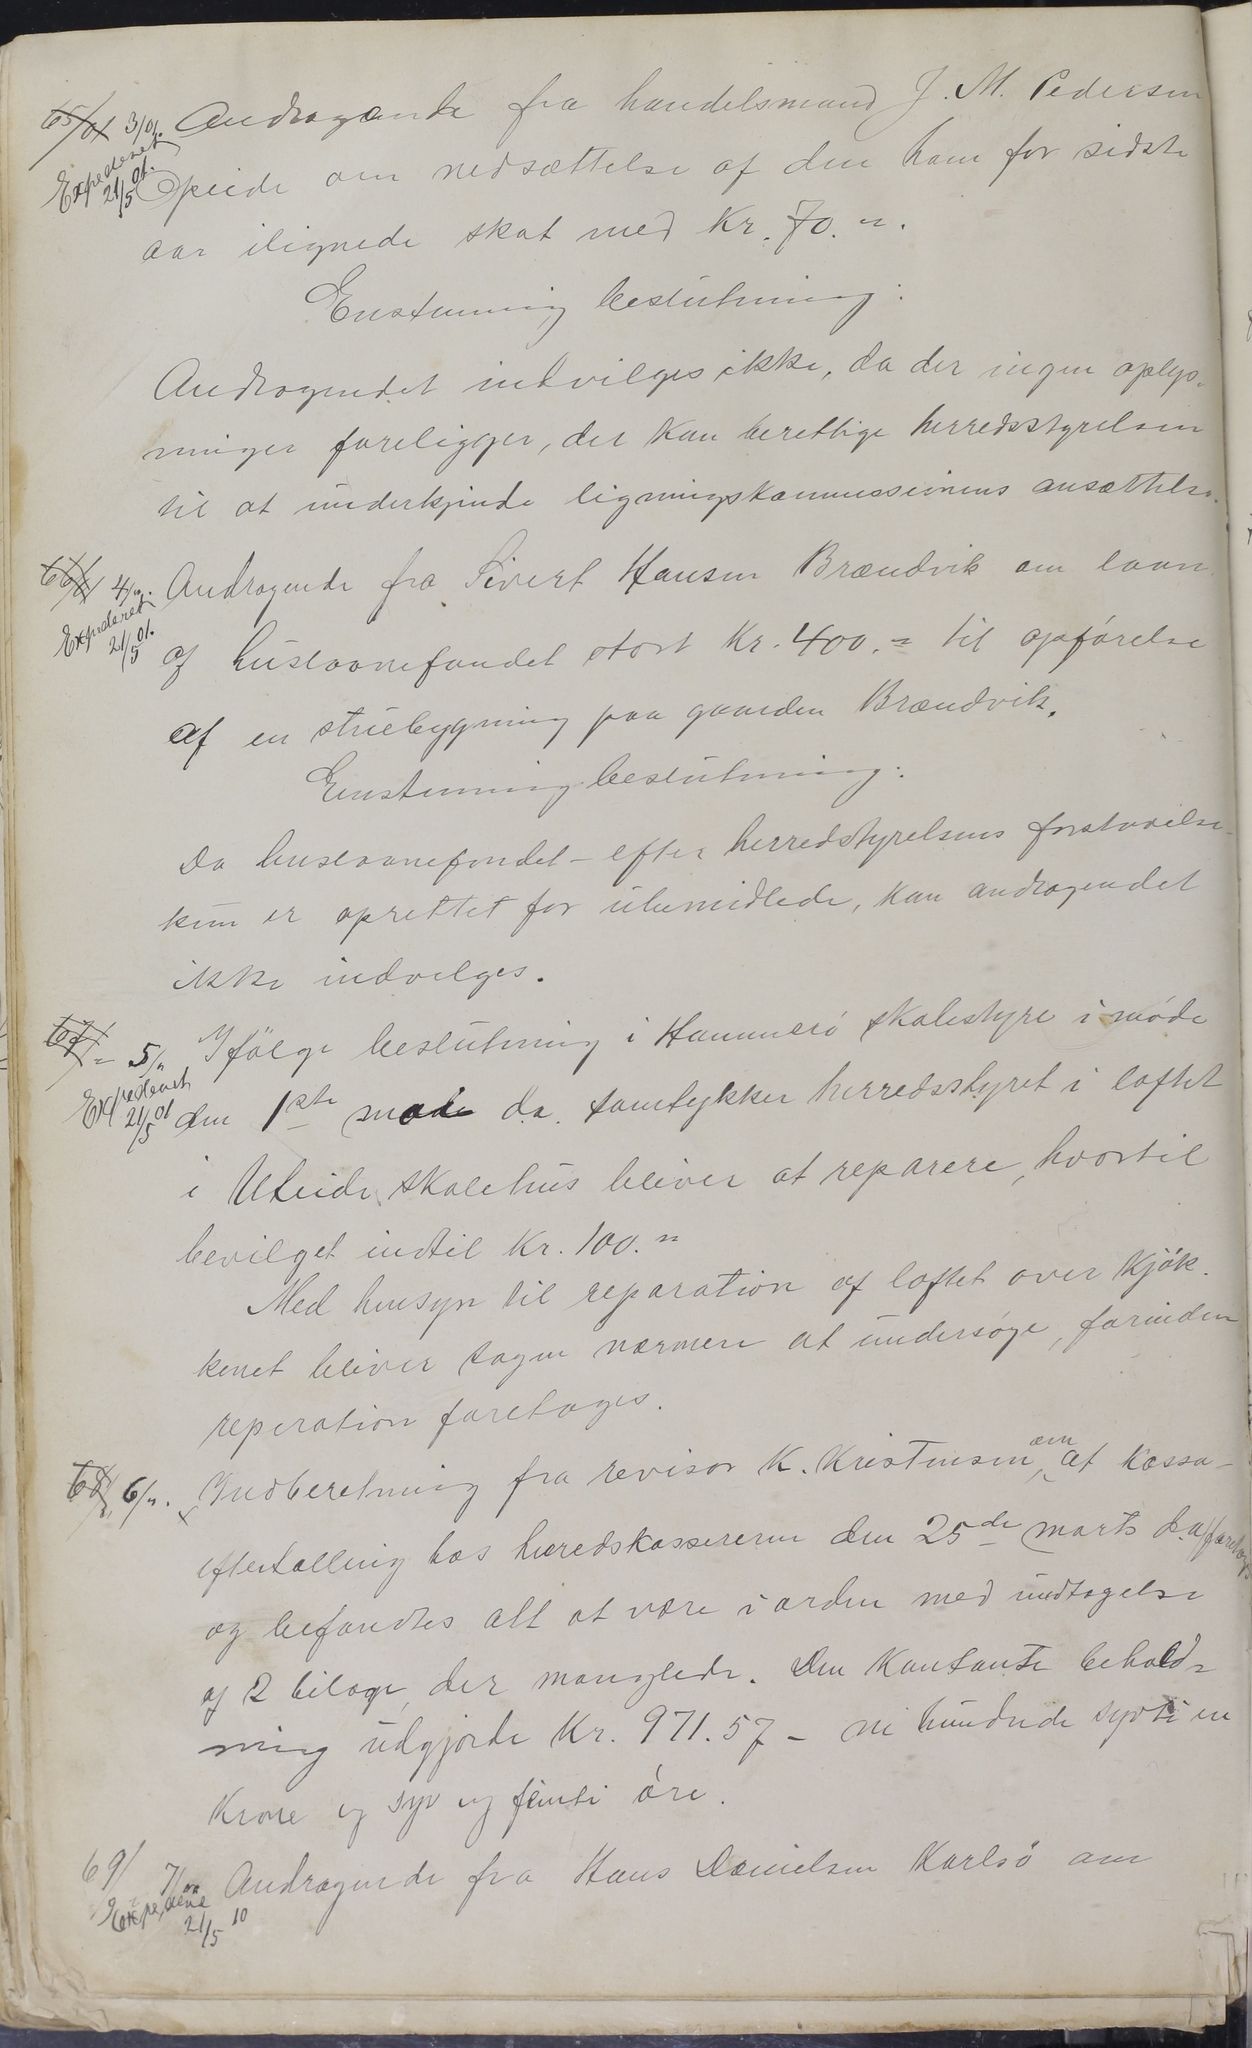 65/01 3/01. Andragende fra handelsmand J. M. Pedersen
Expederet 21/5 01. Opeide om nedsættelse af den ham for sidste
aar ilignede skat med Kr. 70.
Enstemmig beslutning:
Andragendet indvilges ikke, da der ingen oplys-
ninger foreligger, der kan berettige herredsstyrelsen
til at underkjende ligningskommissionens ansættelse.
66/01 4/01. Andragende fra Sivert Hansen Brændvik om laan
Expederet 21/5 01.
af huslaanefondet stort Kr. 400.= til opførelse
af en stuebygning paa gaarden Brændvik.
Enstemmig beslutning:
Da huslaanefondet - efter herredstyrelsens forstaaelse -
kun er oprettet for ubemidlede, kan andragendet
ikke indvilges.
67/ 5/ Ifølge beslutning i Hammerø skolestyre i møde
Expederet 21/5 01 den 1ste d.a. samtykker herredsstyret i loftet
i Uteide skolehus bliver at reparere, hvortil
bevilget indtil Kr. 100.
Med hensyn til reparation af loftet over kjøk-
kenet bliver sagen nærmere at undersøge, forinden
reperation foretages.
68/ 6/ Indberetning fra revisor K. Kristensen om at kassa-
eftertælling hos herredskassereren den 25de marts d.a. foretoges
og befandtes alt at være i orden med undtagelse
af 2 bilage, der manglede. Den kontante behold-
ning udgjorde Kr. 971.57 - ni hundrede sytti en
Krone og syv og femti øre.
69/ 7/ Andragende fra Hans Danielsen Karlsø om
21/5 10